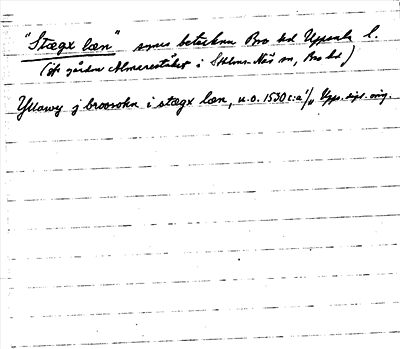 "Stægx læn" synes beteckna Bro hd Uppsala l.
(jfr gården Almarestäket i Sthlms-Näs sn, Bro hd)
Yttawy j broosokn i stægx læn, u.o. 1530 Upps. dipl. orig.